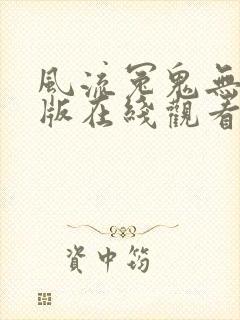 風流冤鬼無
版在綫觀看
資中筠